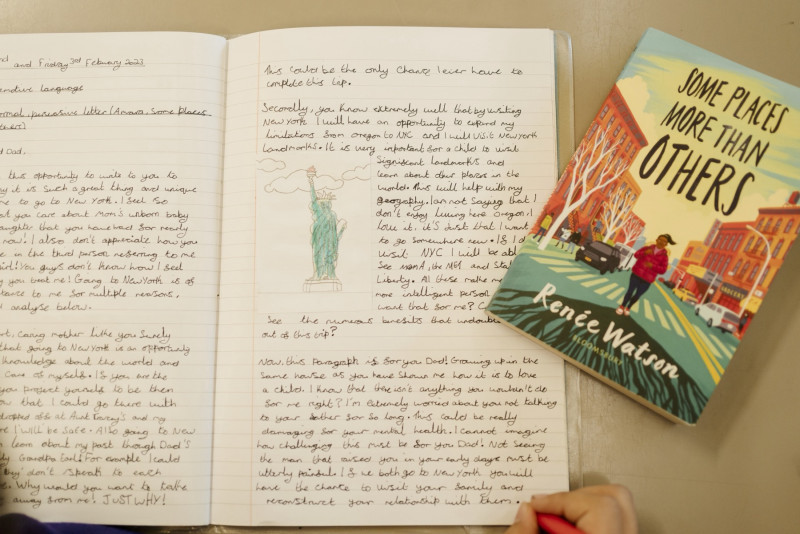 and Friday 3rd February 2023
language
persuasive letter (Amara, Some Places
Dad,
this opportunity to write to you to
it is such a great thing and unique
me to go to New York. I feel so
you care about Mom's unborn baby
that you have had for nearly
now. I also don't appreciate how you
in the third person referring to me
girl! You guys don't know how I feel
you treat me! Going to New York is of
to me for multiple reasons,
analyse below.
caring mother like you surely
that going to New York is an opportunity
knowledge about the world and
care of myself. If you are the
you project yourself to be then
that I could go there with
dropped off at Aunt and my
I will be safe. Also going to New
learn about my past though Dad's
Grandpa Earl! For example I could
don't speak to each
Why would you want to take
away from me! JUST WHY!
This could be the only chance I ever have to
complete this trip.
Secondly, you know extremely well that by visiting
New York I will have an opportunity to expand my
limitations from oregon to NYC and I will visit New York
landmarks. It is very important for a child to visit
significant landmarks and
learn about their places in the
world. This will help with my
geography. I am not saying that I
don't enjoy living here Oregon, I
love it. it's just that I want
to go somewhere new. If I d
visit NYC I will be abl
See MomA, the MET and Stat
Liberty. All these make me
more intelligent person
want that for me? C
See the numerous benefits that undoub
out of this trip?
Now, this Paragraph is for you Dad! Growing up in the
same house as you have shown me how it is to love
a child. I know that there isn't anything you wouldn't do
for me right? I'm extremely worried about you not talking
to your father for so long. This could be really
damaging for your mental health. I cannot imagine
how challenging this must be for you Dad! Not seeing
the man that raised you in your early days must be
utterly painful. If we both go to New York you will
have the chance to visit your family and
reconstruct your relationship with them.
SOME PLACES
MORE THAN
OTHERS
GROCERY
Renée Watson
BLOOMSBURY